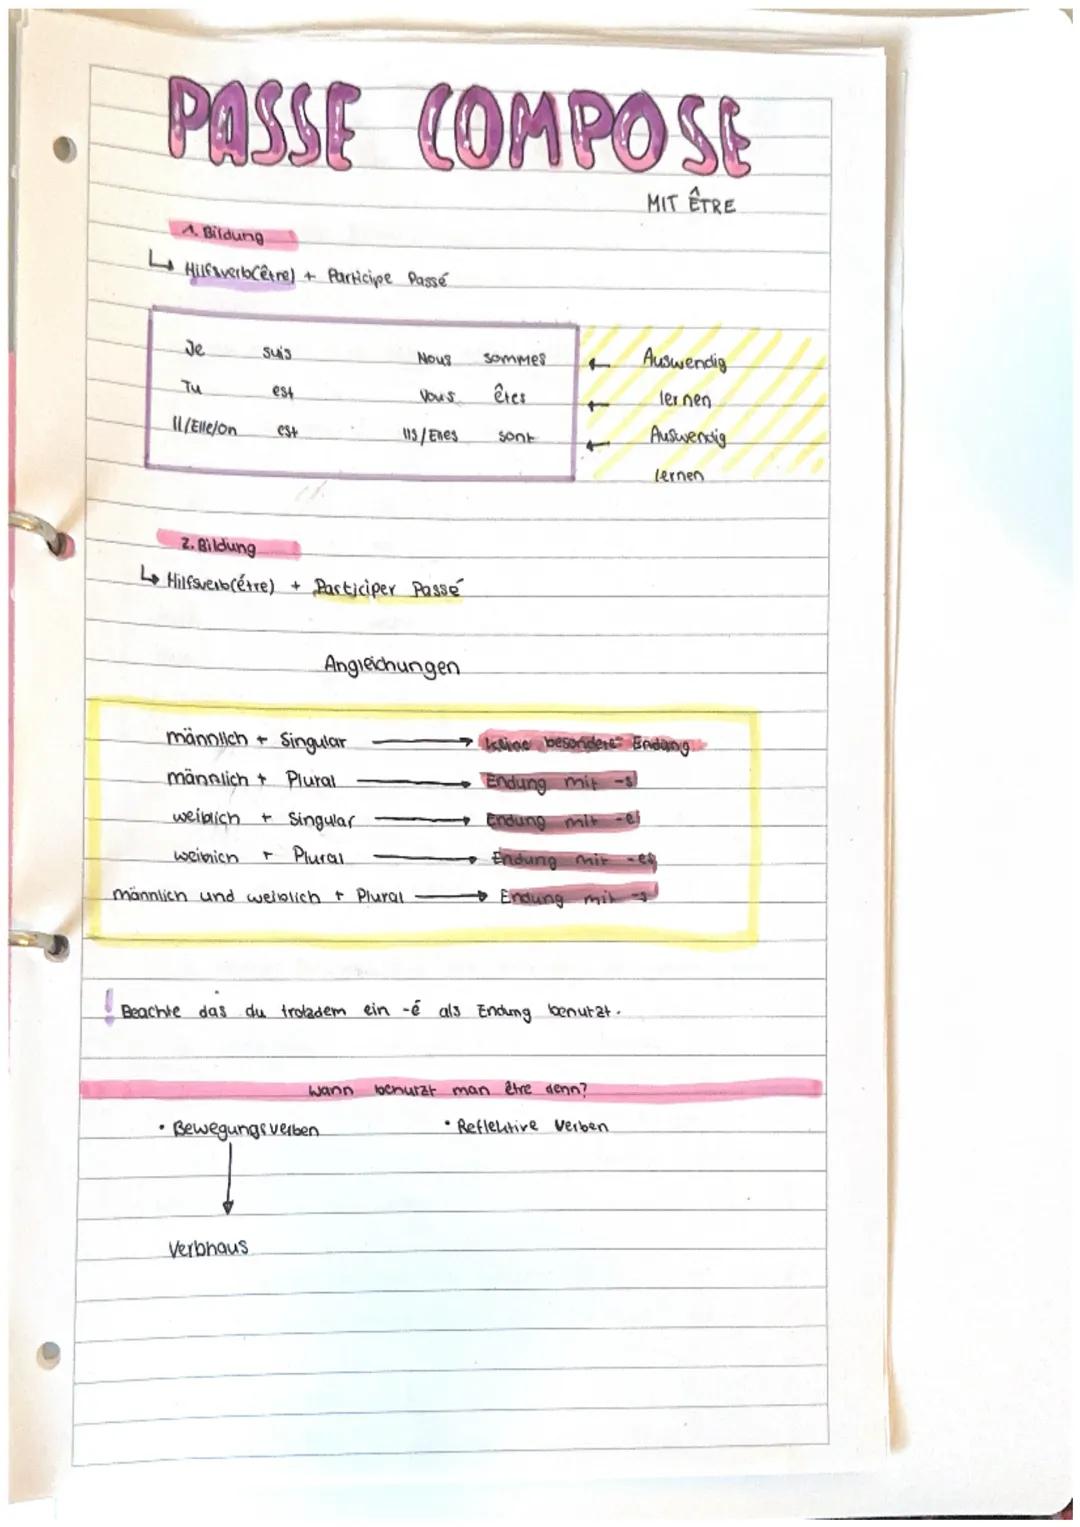 PASSE COMPOSE
MIT ÊTRE
1. Bildung
↳ Hilfsverb(être) + Participe Passé
Je suis Nous sommes ← Auswendig
Tu est Vous êtes ← lernen
Il/Elle/on est Ils/Elles sont ← Auswendig
lernen
2. Bildung
↳ Hilfsverb(étre) + Participer Passé
Angleichungen
männlich + Singular → keine besondere Endung
männlich + Plural → Endung mit -s
weiblich + Singular → Endung mit -e
weiblich + Plural → Endung mit -es
männlich und weiblich + Plural → Endung mit -s
! Beachte das du trotzdem ein -é als Endung benutzt.
Wann benutzt man être denn?
• Bewegungsverben • Reflektive Verben
Verbhaus